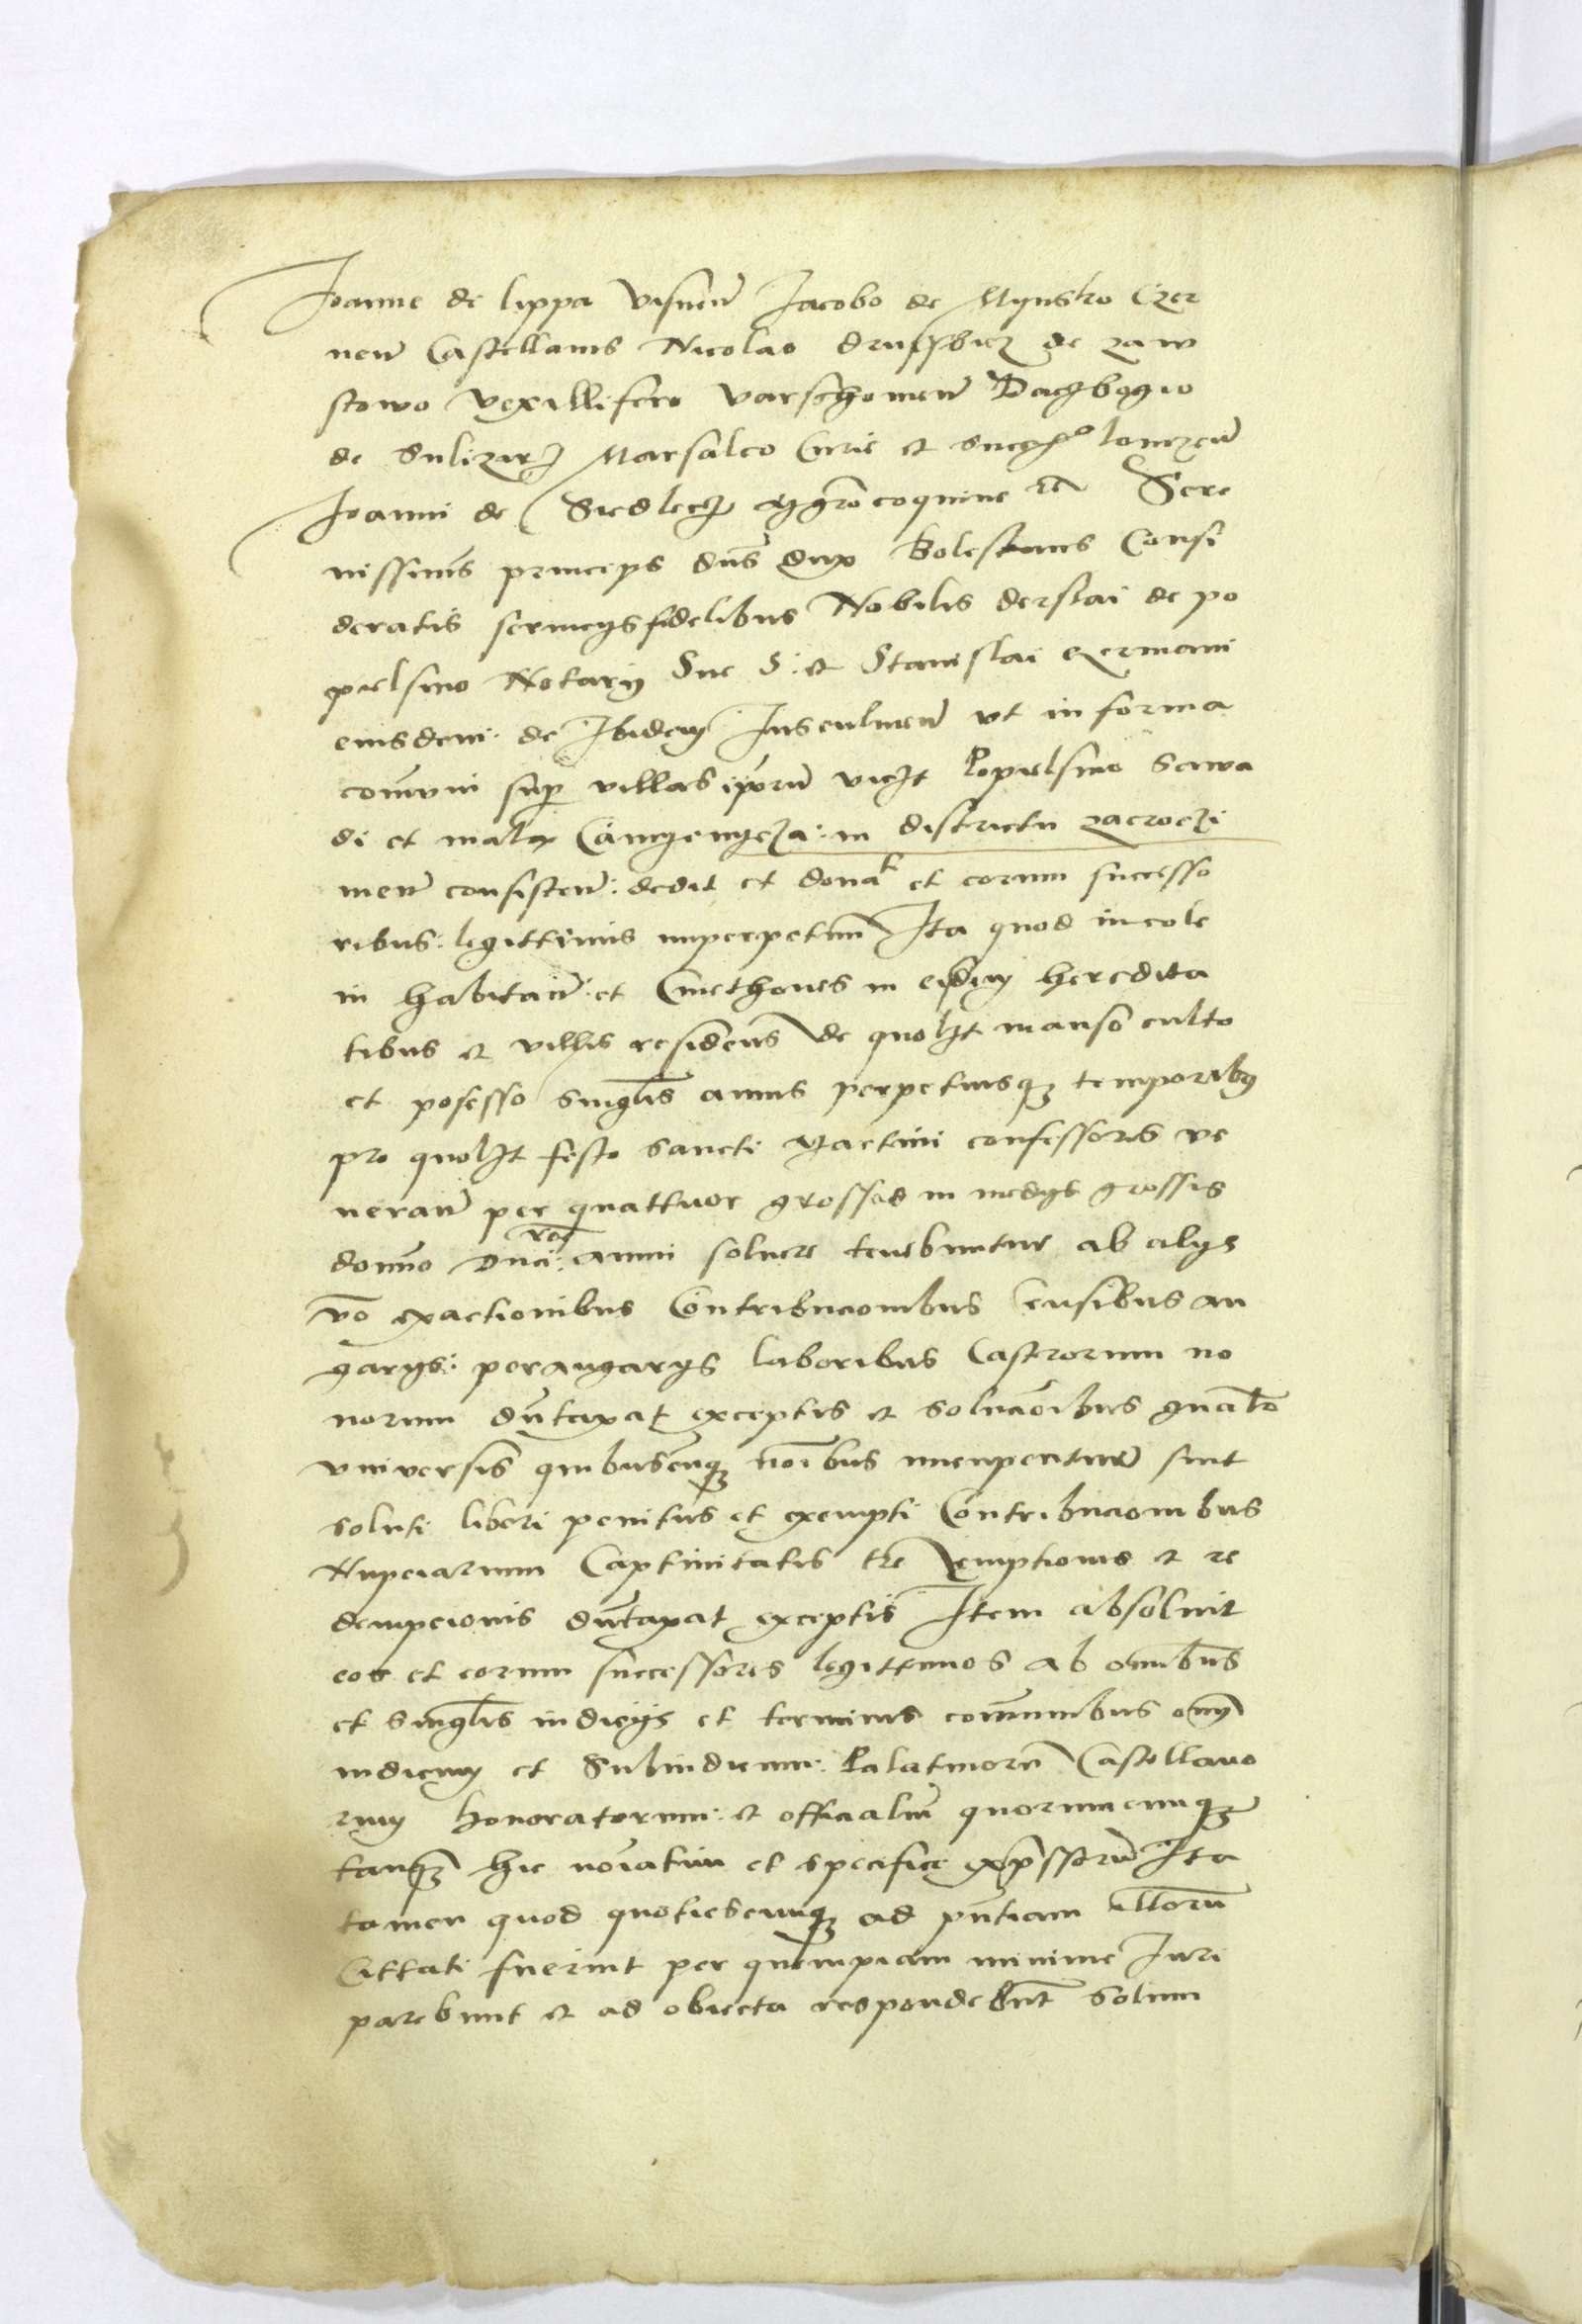 Joanne de lippa visnen Jacobo de Mynsko Czer
nen Castellanis Nicolao de zaw
stowo vexillifero varschowien
de Marsalco Curie et lomzen
Joanni de Siedlecz coquine Sere
nissimus princeps dns dux Boleslaus Consi
deratis fidelibus Nobilis derslai de po
pielsino Notarij Sue S. et Stanislai germani
eiusdem de Ibidem vt in forma
comuni sup villas ipsorum Popielsino Sawa
di et mala in districtu zacroczi
men consisten: dedit et donat et eorum successo
ribus legittimis imperpetuum Ita quod incole
in habitan: et Cmethones in eisdem heredita
tibus et villis residens de quolibet manso culto
et posesso singulis annis perpetuisq temporibus
pro quolibet festo sancti Martini confessoris ve
neran per quattuor grossos in medys grossis
domino Duci: anni soluere tenebuntur ab alys
vo exactionibus Contribucionibus Censibus an
garys: perangarys laboribus Castrorum no
norum duntaxat exceptis et soluaoibus gnalr
vniversis quibuscunq noibus nuncupentur sint
soluti liberi penitus et exempti Contribucionibus
Nupciarum Captiuitatis tre emptionis et re
dempcionis duntaxat exceptis Item absoluit
eos et eorum successores legittimos ab omnibus
et singulis iudicys et terminis comunibus omn
iudicum et Subiudicum: Palatinorum Castellano
rum honoratorum: et officialium quorumcunq
tanq hic noiatim et specifice expressorum Ita
tamen quod quotiescunq ad pntiam illorum
Cittati fuerint per quempiam minime Juri
parebunt et ad obiecta respondebunt solum